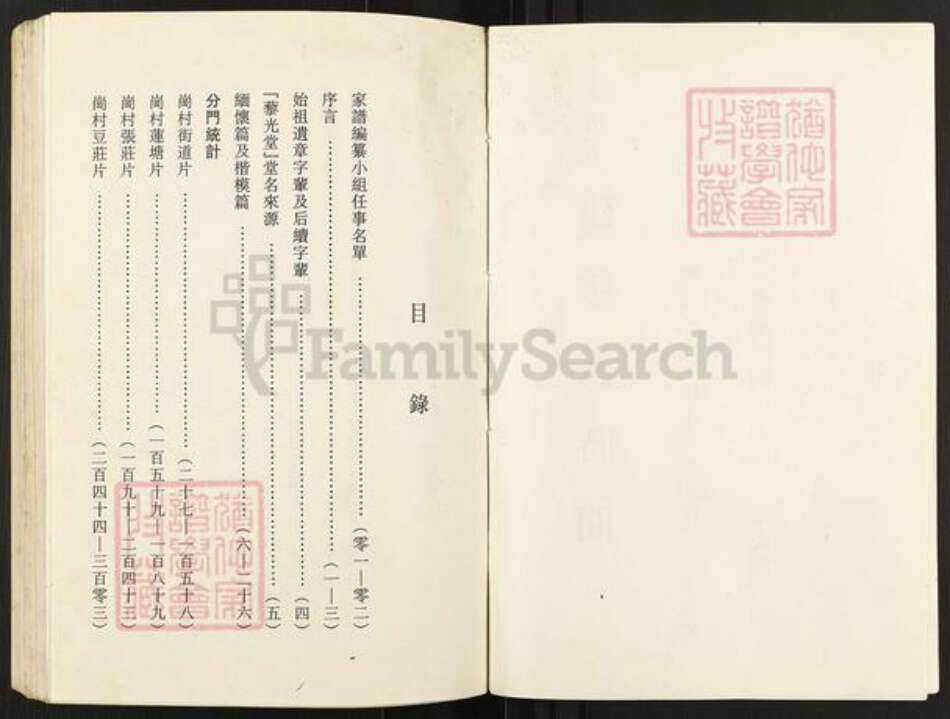 目錄
家譜編纂小組任事名單……(零一—零二)
序言……(一—三)
始祖遺章字輩及后續字輩……(四)
「藜光堂」堂名來源……(五)
緬懷篇及楷模篇……(六—二十六)
分門統計
崗村街道片……(二十七—一百五十八)
崗村蓮塘片……(一百五十九—一百八十九)
崗村張莊片……(一百九十—二百四十三)
崗村豆莊片……(二百四十四—三百零三)
FamilySearch
譜學會
收藏
譜學會
收藏